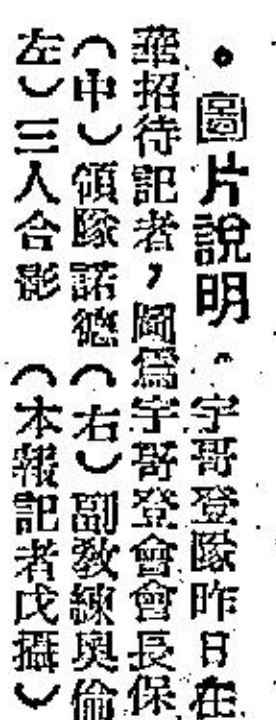 •圖片說明。宇哥登隊昨日在
華招待記者,圖爲宇哥登會會長保
(中)領隊諾德(右)副敎練奧倫
左)三人合影 (本報記者戊攝)